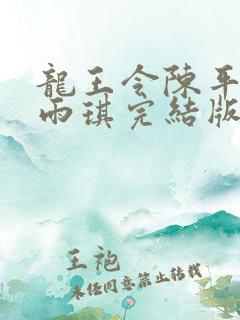 龍王令陳平
雨琪完結版
王袍
未经同意禁止转载